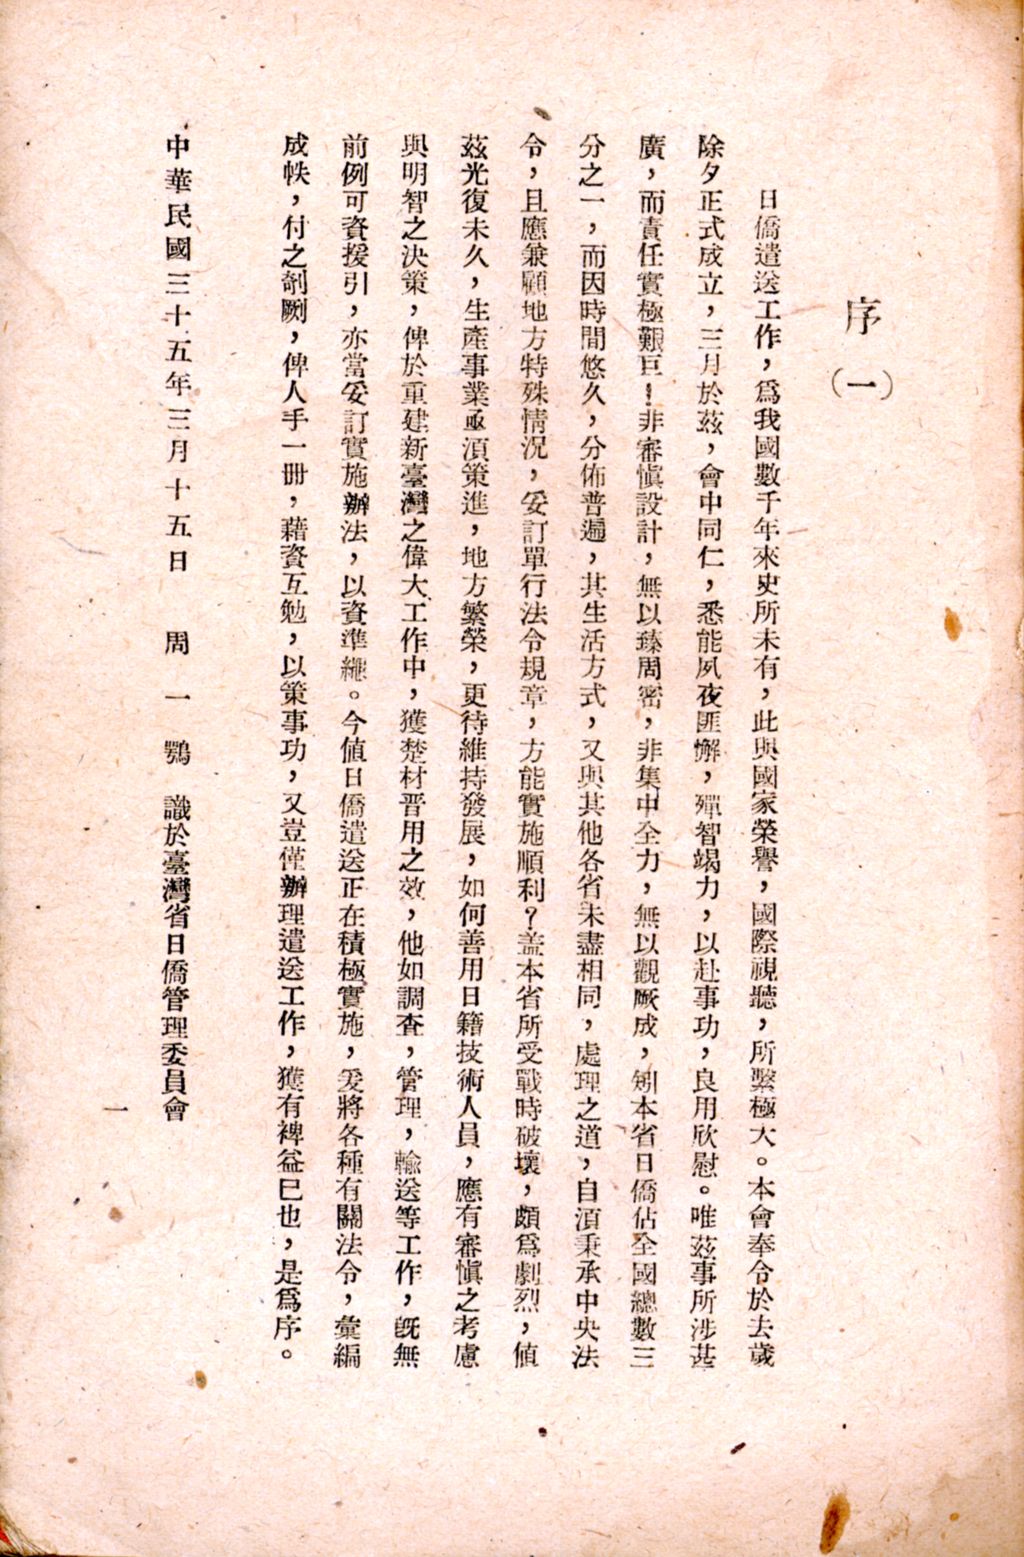 序(一)
日僑遣送工作，爲我國數千年來史所未有，此與國家榮譽，國際視聽，所繫極大。本會奉令於去歲
除夕正式成立，三月於茲，會中同仁，悉能夙夜匪懈，殫智竭力，以赴事功，良用欣慰。唯茲事所涉甚
廣，而責任實極艱巨！非審愼設計，無以臻周密，非集中全力，無以觀厥成，矧本省日僑佔全國總數三
分之一，而因時間悠久，分佈普遍，其生活方式，又與其他各省未盡相同，處理之道，自須秉承中央法
令，且應兼顧地方特殊情況，妥訂單行法令規章，方能實施順利？蓋本省所受戰時破壞，頗爲劇烈，値
茲光復未久，生產事業亟須策進，地方繁榮，更待維持發展，如何善用日籍技術人員，應有審愼之考慮
與明智之決策，俾於重建新臺灣之偉大工作中，獲楚材晋用之效，他如調查，管理，輸送等工作，旣無
前例可資援引，亦當妥訂實施辦法，以資準繩。今値日僑遣送正在積極實施，爰將各種有關法令，彙編
成帙，付之剞劂，俾人手一冊，藉資互勉，以策事功，又豈僅辦理遣送工作，獲有裨益巳也，是爲序。
中華民國三十五年三月十五日 周一鶚 識於臺灣省日僑管理委員會
一